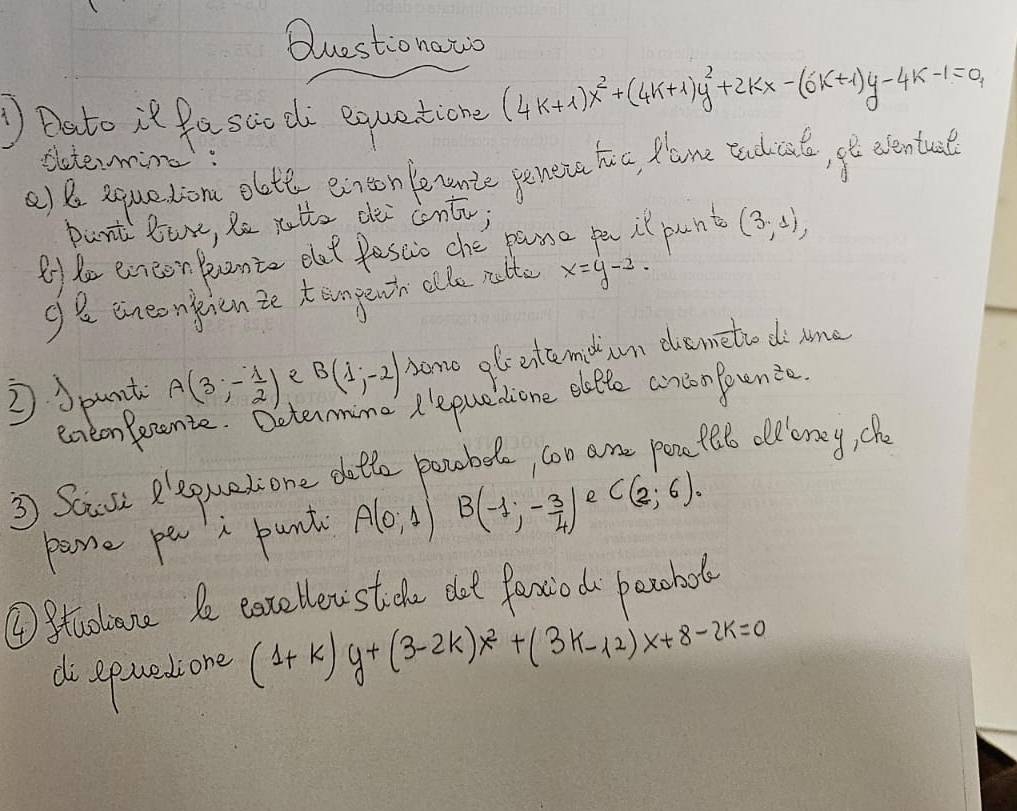 Questionario
1) Dato il fascio di equazione (4K+1)x²+(4K+1)y²+2Kx-(6K+1)y-4K-1=0,
determina:
a) le equazioni delle circonferenze generatrici, l'asse radicale, gli eventuali
punti base, la retta dei centri;
b) la circonferenza del fascio che passa per il punto (3;1),
c) le circonferenze tangenti alla retta x=y-2.
2) I punti A(3;-1/2) e B(1;-2) sono gli estremi di un diametro di una
circonferenza. Determina l'equazione della circonferenza.
3) Scrivi l'equazione della parabola, con asse parallelo all'asse y, che
passa per i punti A(0;1) B(-1;-3/4) e C(2;6).
4) Studiare le caratteristiche del fascio di parabole
di equazione (1+K)y+(3-2K)x²+(3K-12)x+8-2K=0